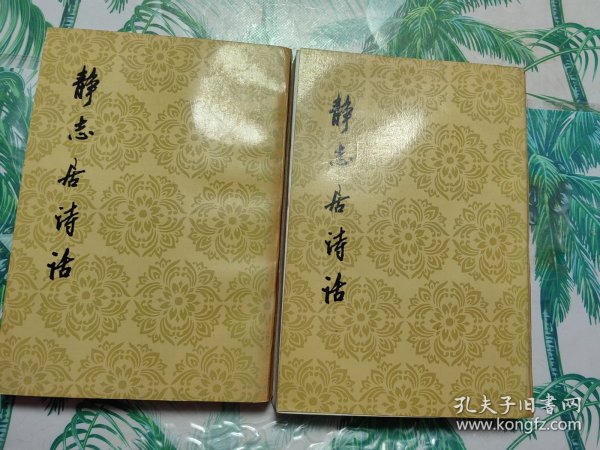 静志居诗话
静志居诗话
孔夫子旧书网
www.kongfz.com